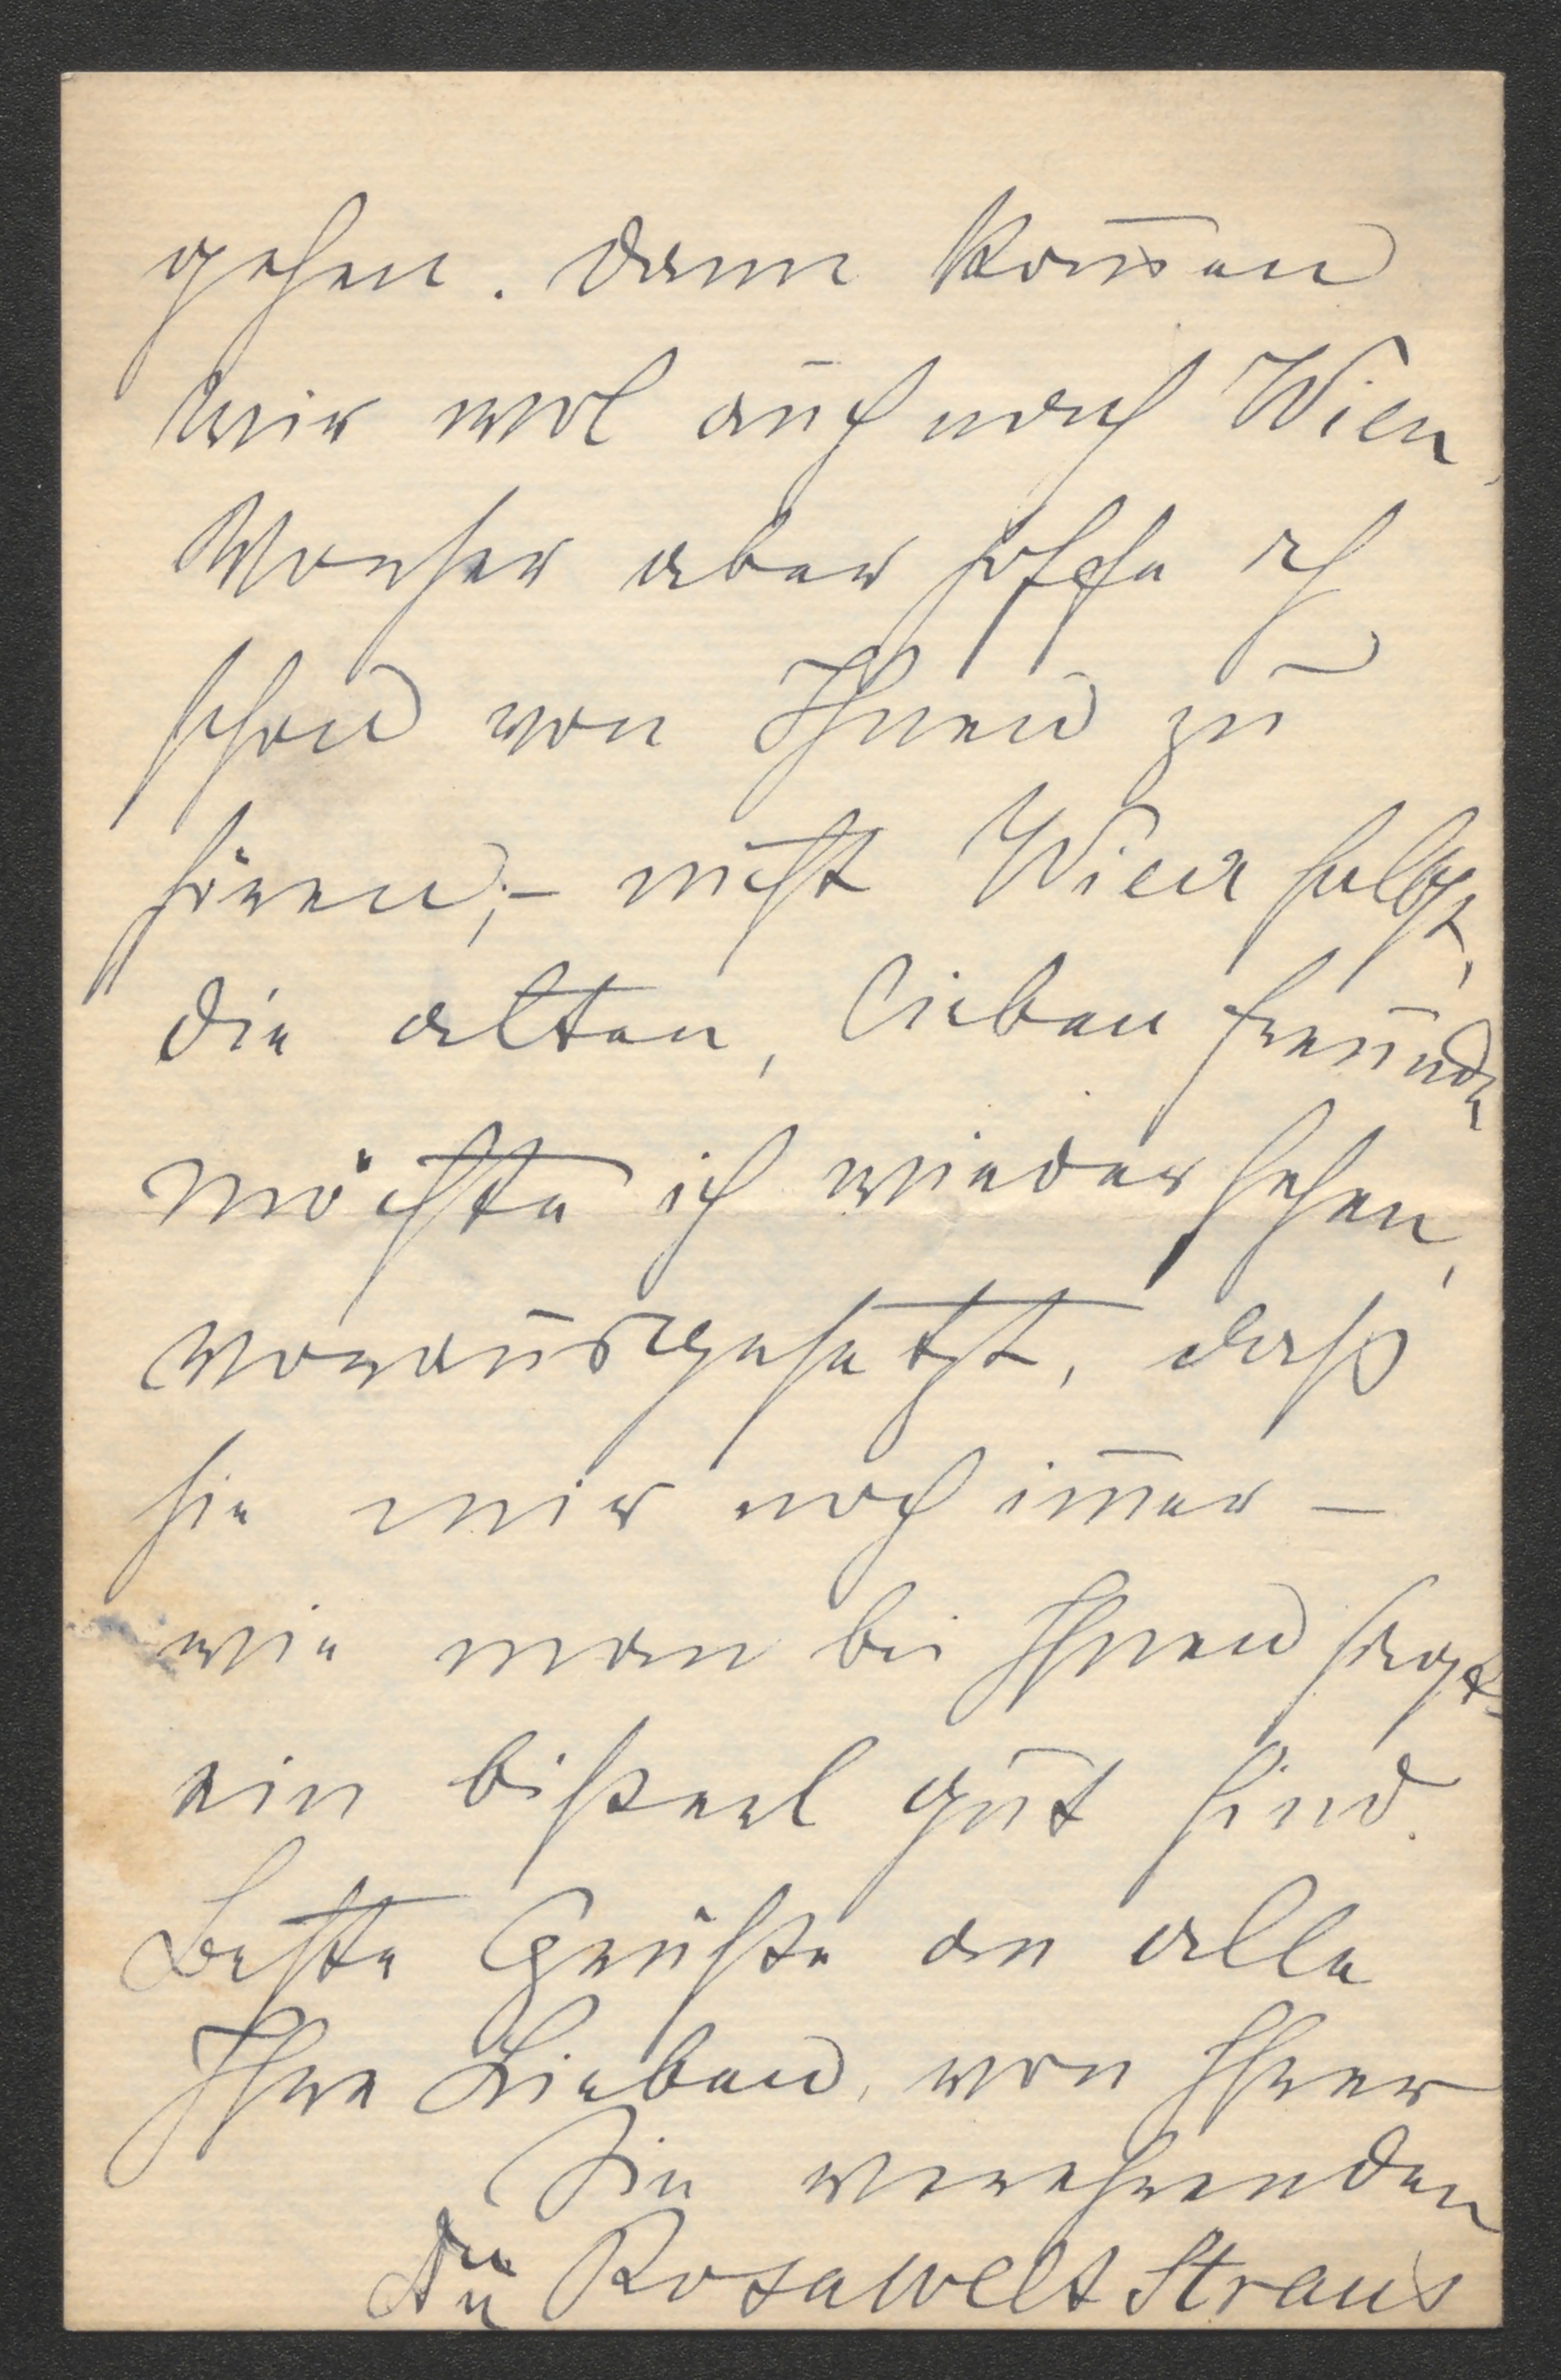 gehen. Dann kom̅en
wir wol auch nach Wien.
Vorher aber hoffe ich
schon von Ihnen zu
hören; – nicht Wien selbst,
die alten, lieben Freunde
möchte ich wiedersehen,
vorausgesetzt, daß
sie mir noch im̅er –
wie man bei Ihnen sagt –
ein bißerl gut sind.
Beste Grüße an alle
Ihre Lieben, von Ihrer
Sie verehrenden
Rosa Welt Straus